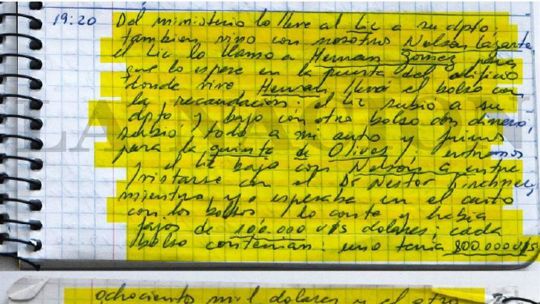 19:20 Del ministerio lo lleve al Lic a su dpto,
tambien vino con nosotros Nelson Lazarte,
el Lic lo llamo a Hernan Gomez para
que lo espere en la puerta del edificio
donde vive Hernan, llevó el bolso con
la recaudacion; el Lic subio a su
dpto y bajo con otro bolso con dinero,
subio todo a mi auto y fuimos
para la quinta de Olivos, entramos
y el Lic bajo con Nelson a entre
vistarse con el Dr Nestor Kirchner,
mientras yo esperaba en el auto
con los bolsos, lo conte y habia
fajos de 100.000 U$S dolares; cada
bolso contenian: uno tenia 800.000 U$S
ochociento mil dolares y el otro
LA NACION